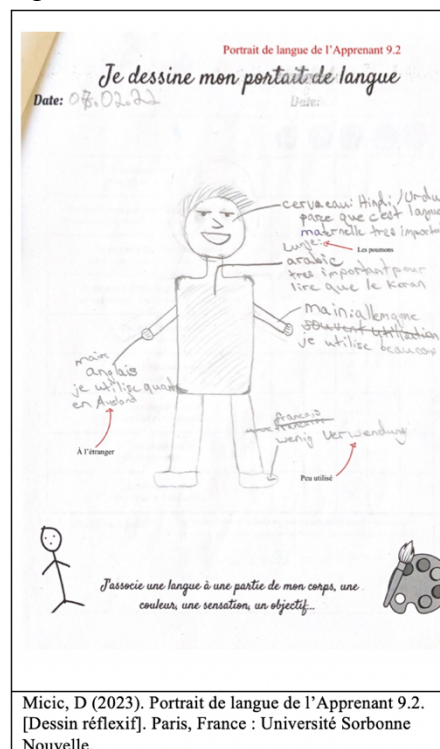 Portrait de langue de l'Apprenant 9.2
Je dessine mon portait de langue
Date: 08.02.22
Date:
cerveau: Hindi / Urdu
parce que c'est langue
maternelle tres important
Lunge:
Les poumons
arabic
tres important pour
lire que le Koran
main: allemagne
souvent utilisation
je utilise beaucoup
main
anglais
je utilise quand
en Ausland
À l'étranger
francais
wenig Verwendung
Peu utilisé
J'associe une langue à une partie de mon corps, une
couleur, une sensation, un objectif...
Micic, D (2023). Portrait de langue de l'Apprenant 9.2.
[Dessin réflexif]. Paris, France : Université Sorbonne
Nouvelle